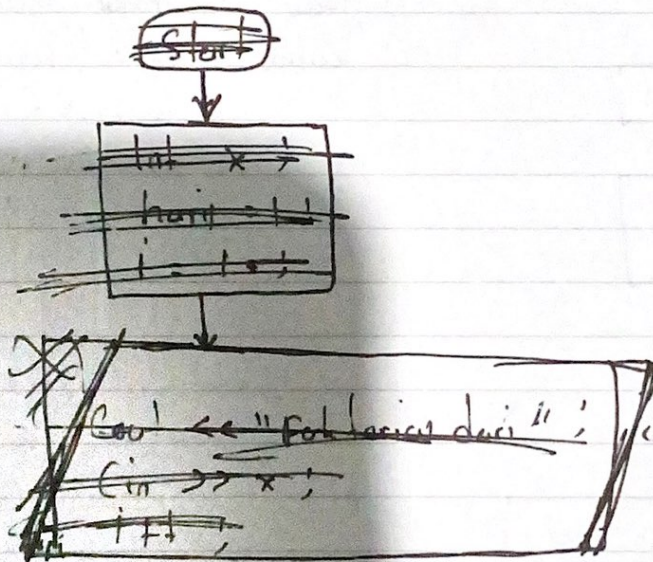 Start
int x;
hasil = 1;
i = 1;
Cout << "Faktorial dari";
Cin >> x;
i++;